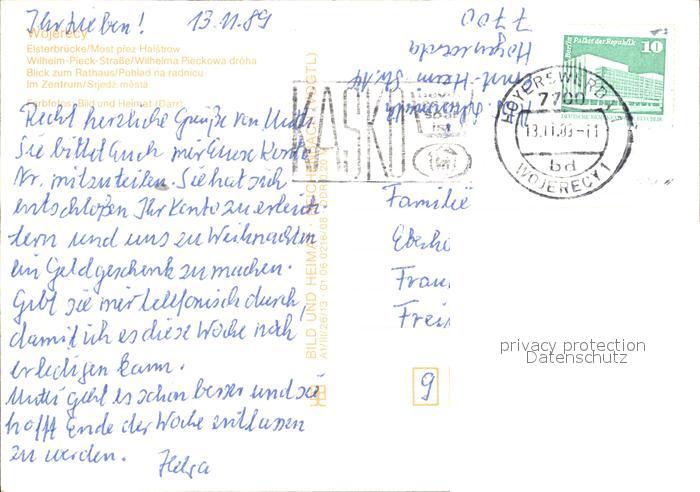 Ihr Lieben! 13.11.89
Wojerecy
Elsterbrücke/Most přez Halštrow
Wilhelm-Pieck-Straße/Wilhelma Pieckowa dróha
Blick zum Rathaus/Pohlad na radnicu
Im Zentrum/Srjedź města
Farbfotos: Bild und Heimat (Darr)
Recht herzliche Grüße von Mutti
Sie bittet auch mir Eure Konto
Nr. mitzuteilen. Sie hat sich
entschloßen Ihr Konto zu erleich
tern und uns zu Weihnachten
ein Geldgeschenk zu machen.
Gebt sie mir telefonisch durch,
damit ich es diese Woche noch
erledigen kann.
Mutti geht es schon besser und sie
hofft Ende der Woche entlassen
zu werden. Helga
BILD UND HEIMAT
A1/III/26/13 01 06 0216/08
KASKO
7700
Hoyerswerda
Str. 14
Berlin Palast der Republik 10
DDR
HOYERSWERDA 1
7700
13.11.89-11
bd
WOJERECY 1
Familie
9
privacy protection
Datenschutz